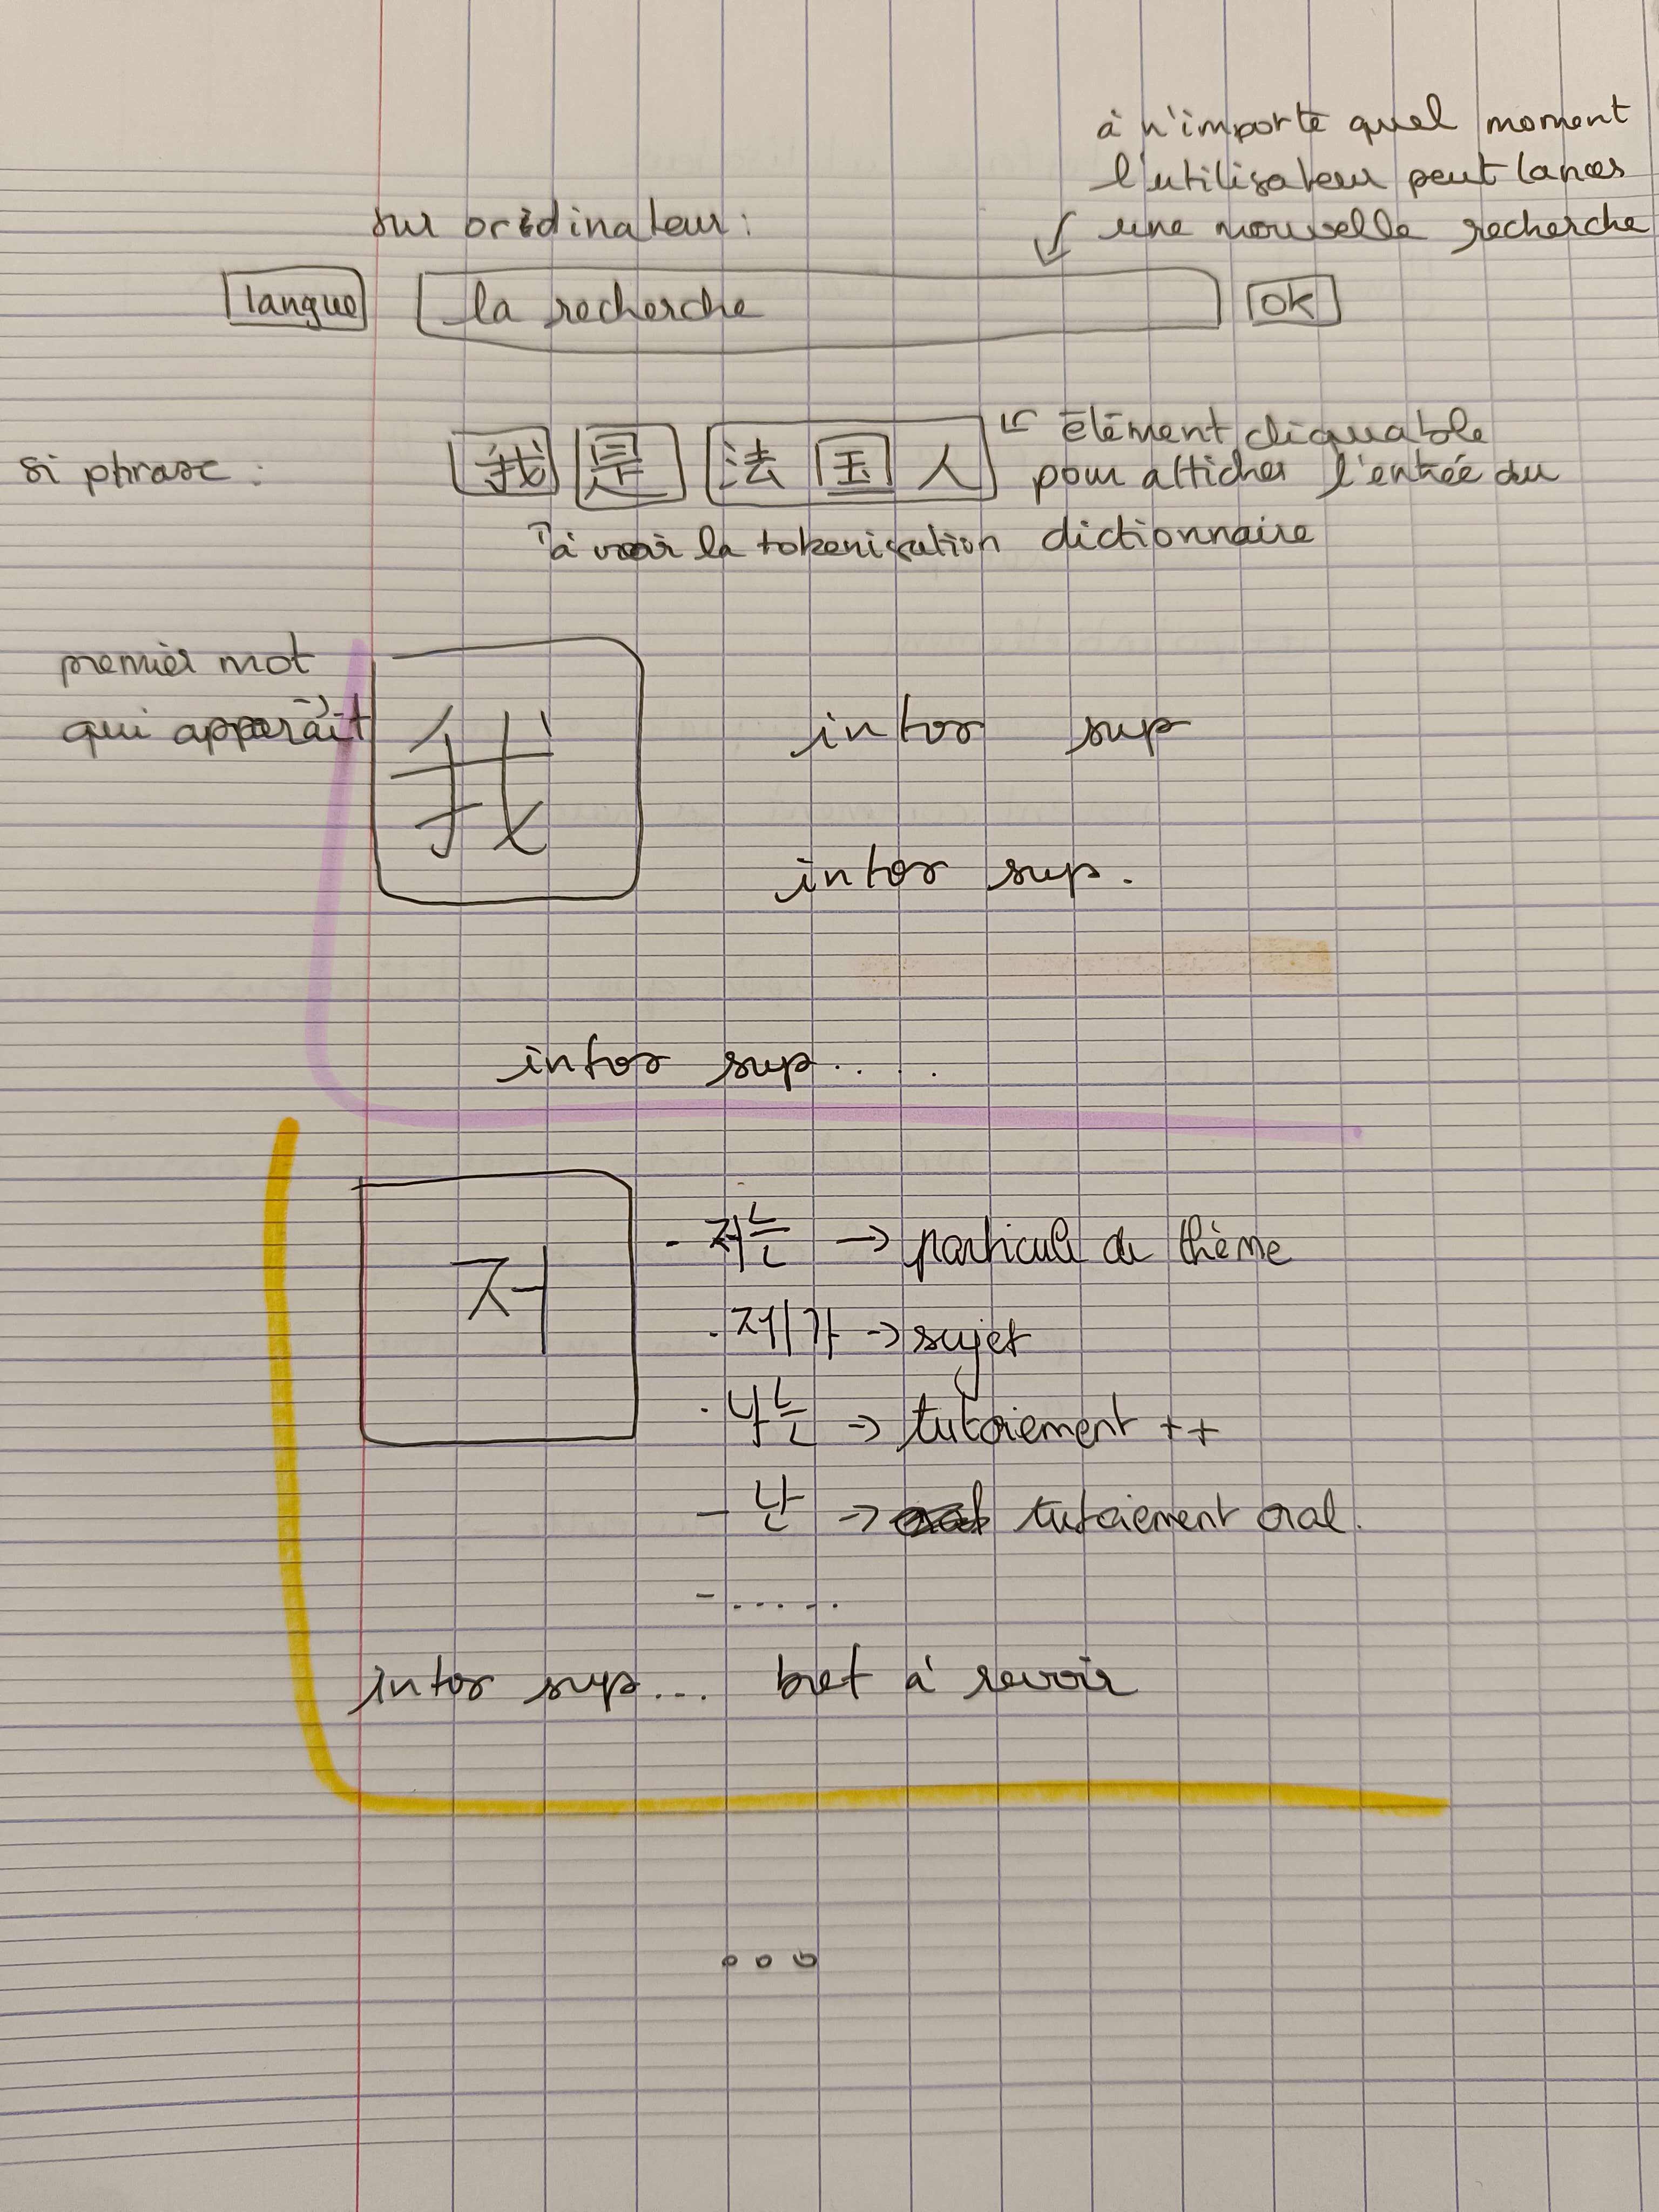 à n'importe quel moment
l'utilisateur peut lancer
une nouvelle recherche
sur ordinateur :
langue la recherche OK
si phrase : 我 是 法国人
élément cliquable
pour afficher l'entrée du
dictionnaire
à voir la tokenisation
premier mot
qui apparaît
我
infos sup
infos sup.
infos sup.....
저
- 저는 → particule de thème
· 제가 → sujet
· 나는 → tutoiement ++
- 난 → tutoiement oral.
- .....
infos sup... bref à revoir
ooo